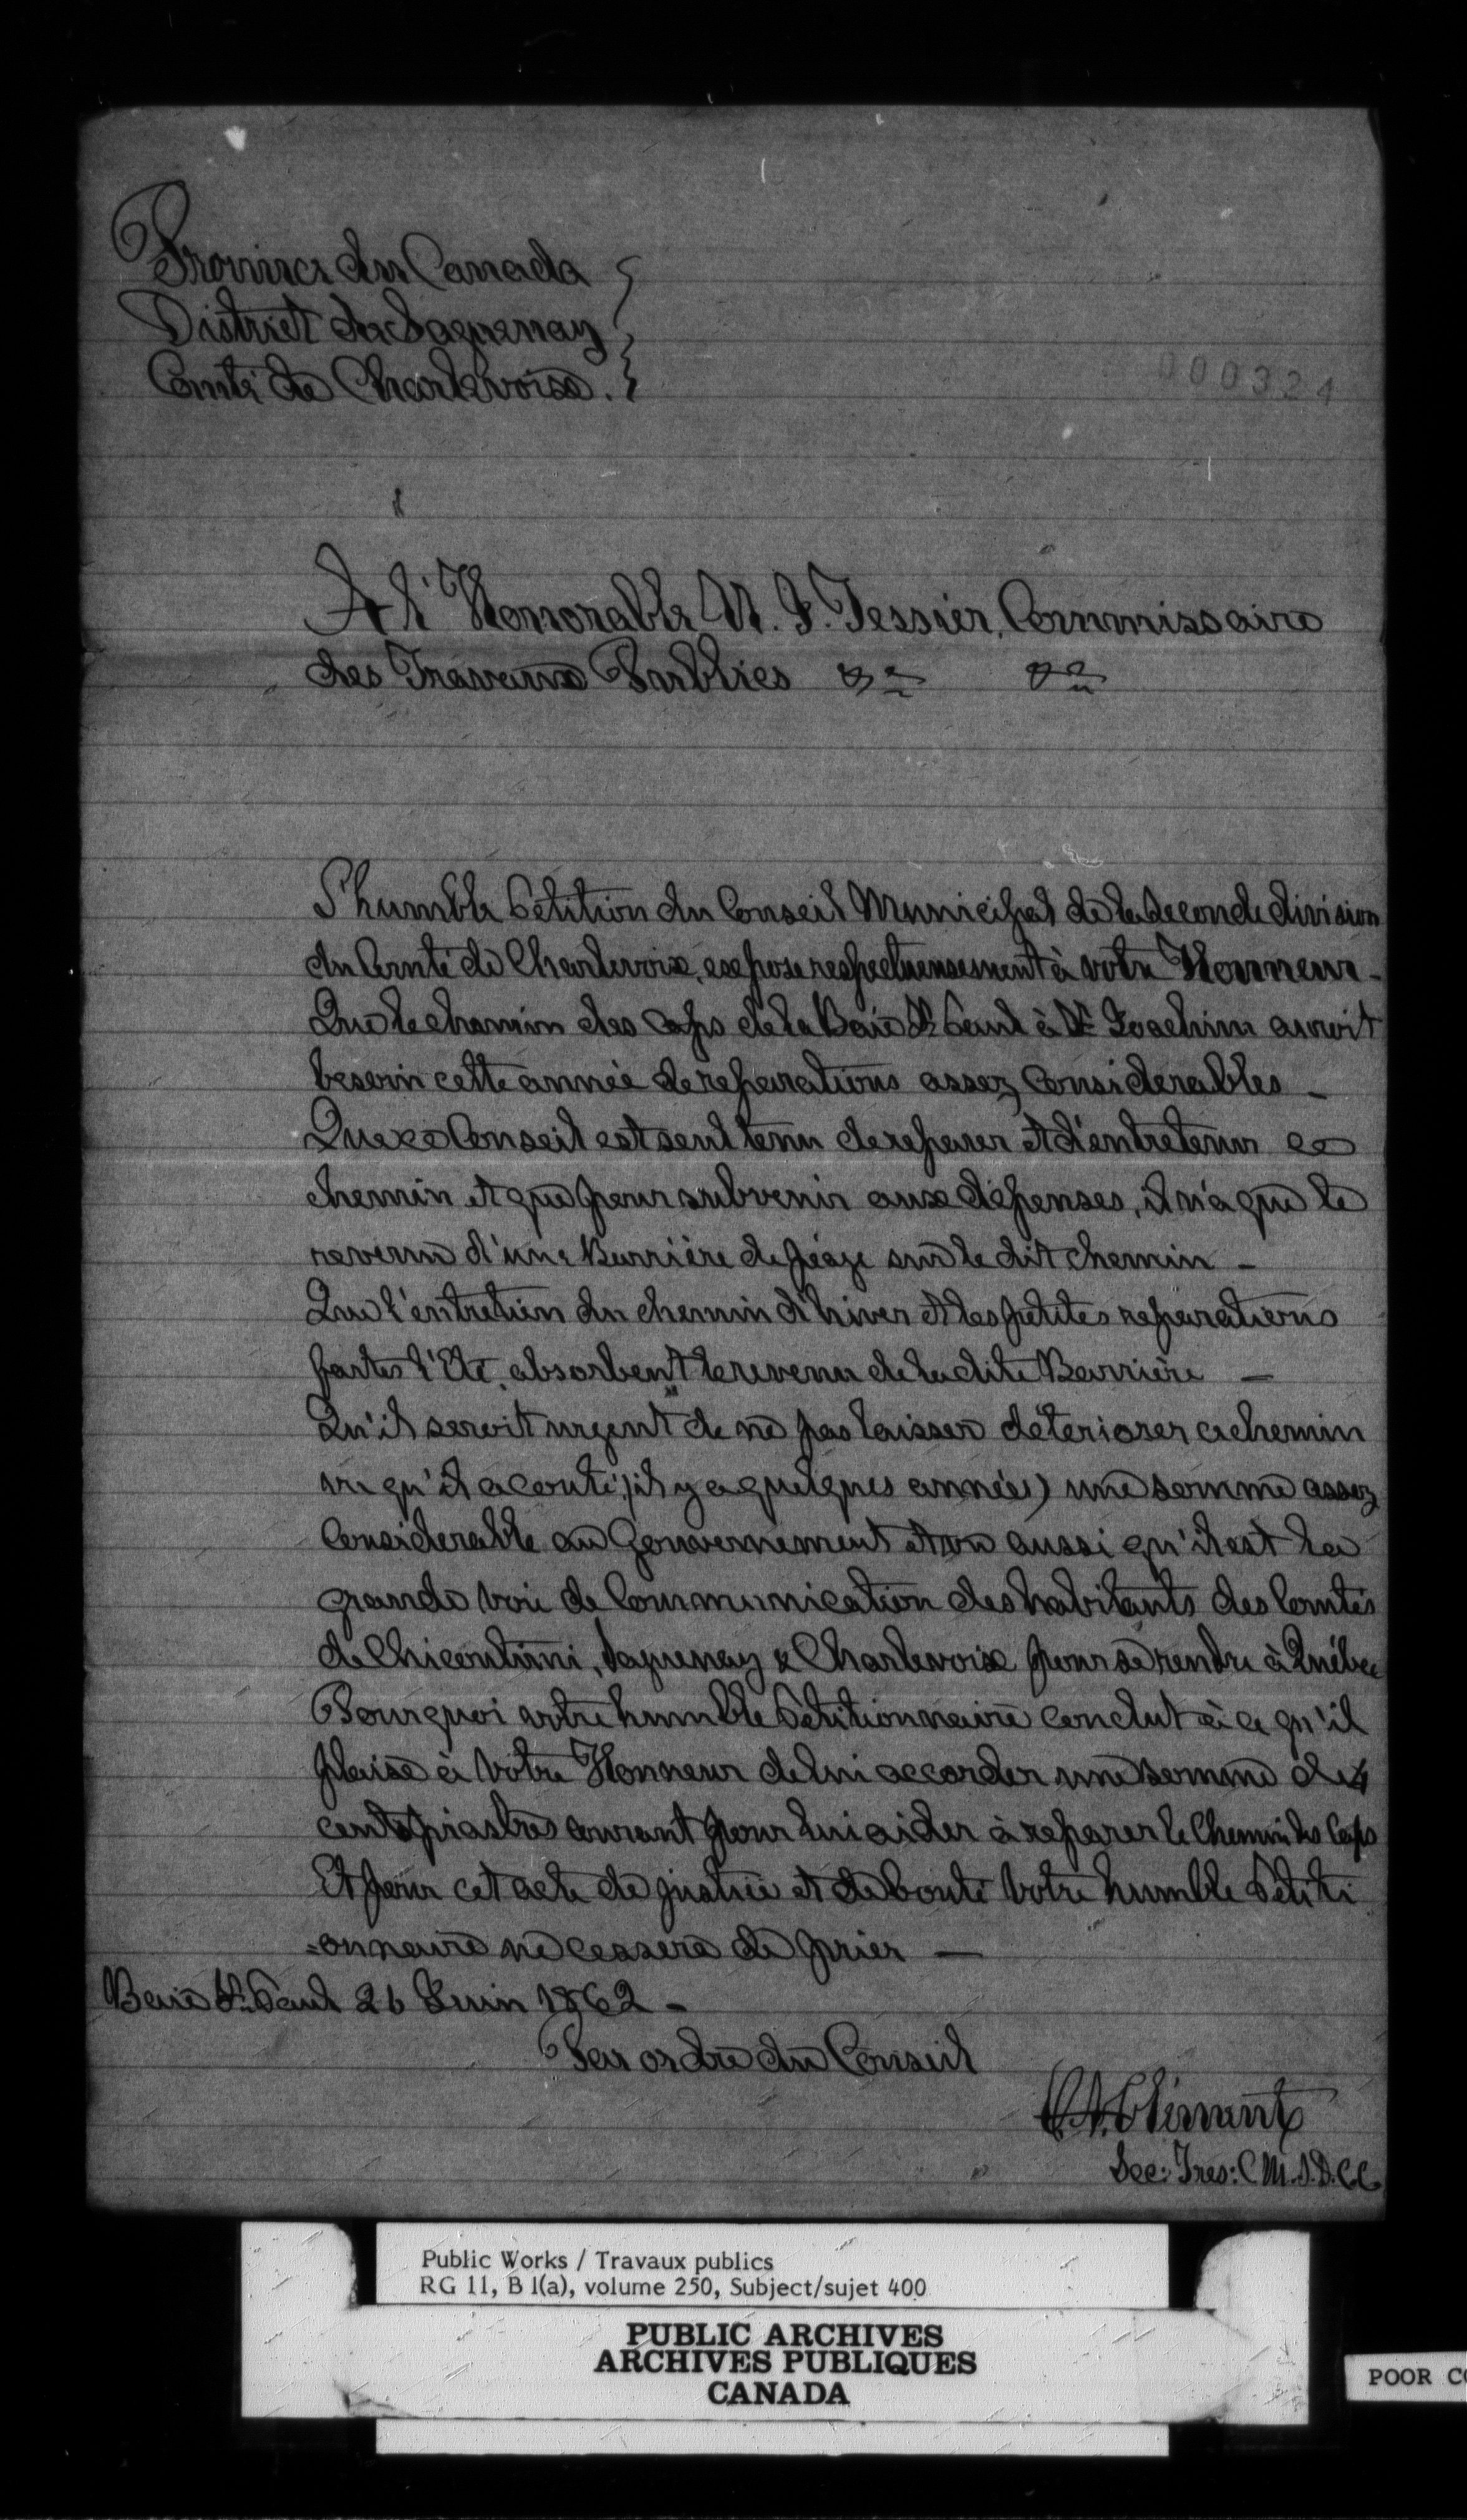 Province du Canada
District du Saguenay
Comté de Charlevoix.
000324
A l'Honorable U. J. Tessier, Commissaire
des Travaux Publics &c &c
L'humble Pétition du Conseil Municipal de la Seconde division
du Comté de Charlevoix, expose respectueusement à votre Honneur -
Que le chemin des Caps de la Baie St Paul à St Joachim auroit
besoin cette année de reparations assez Considerables -
Que ce Conseil est seul tenu de reparer et d'entretenir ce
chemin et que pour subvenir aux dépenses, il n'a que le
revenu d'une Barrière de péage sur le dit chemin -
Que l'entretien du chemin d'hiver et les petites reparations
faites l'Eté, absorbent le revenu de la dite Barrière -
Qu'il seroit urgent de ne pas laisser déteriorer ce chemin
vu qu'il a couté (il y a quelques années) une somme assez
Considerable au Gouvernement et vu aussi qu'il est la
grande voie de Communication des habitants des Comtés
de Chicoutimi, Saguenay & Charlevoix pour se rendre à Québec
Pourquoi votre humble Pétitionnaire conclut à ce qu'il
plaise à Votre Honneur de lui accorder une somme de 4
cents piastres courant pour lui aider à reparer le Chemin des Caps
Et pour cet acte de justice et de bonté Votre humble Pétiti
=onnaire ne cessera de prier -
Baie St. Paul 26 Juin 1862 -
Par ordre du Conseil
Clément
Sec: Tres: C. M. S. D. C. C.
Public Works / Travaux publics
RG 11, B 1(a), volume 250, Subject/sujet 400
PUBLIC ARCHIVES
ARCHIVES PUBLIQUES
CANADA
POOR